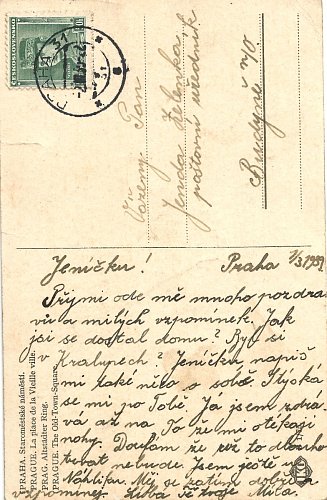 PRAHA 31
Vážený Pan
Jenda Zelenka
poštovní úředník
Budyně n/O.
PRAHA. Staroměstské náměstí.
PRAGUE. La place de la Vieille ville.
PRAG. Altstädter Ring.
PRAGUE. The Old-Town-Square.
Praha 7/3.1939
Jeníčku!
Přijmi ode mě mnoho pozdra-
vů a milých vzpomínek. Jak
jsi se dostal domu? Byl si
v Kralupech? Jeníčku napiš
mi také něco o sobě. Stýská
se mi po Tobě. Já jsem zdrá-
vá až na To že mi otékají
nohy. Doufám že již to dlouho
trvat nebude. Jsem ještě u
Měj se zatím dobře a
vzpomínej. Líbá tě tvoje